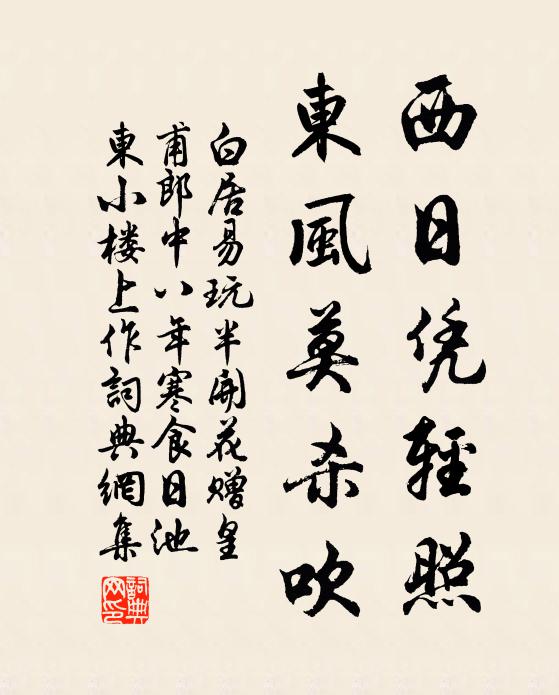 西日凭輕照
東風莫杀吹
白居易玩半開花贈皇
甫郎中八年寒食日池
東小楼上作詞典網集
詞典網印